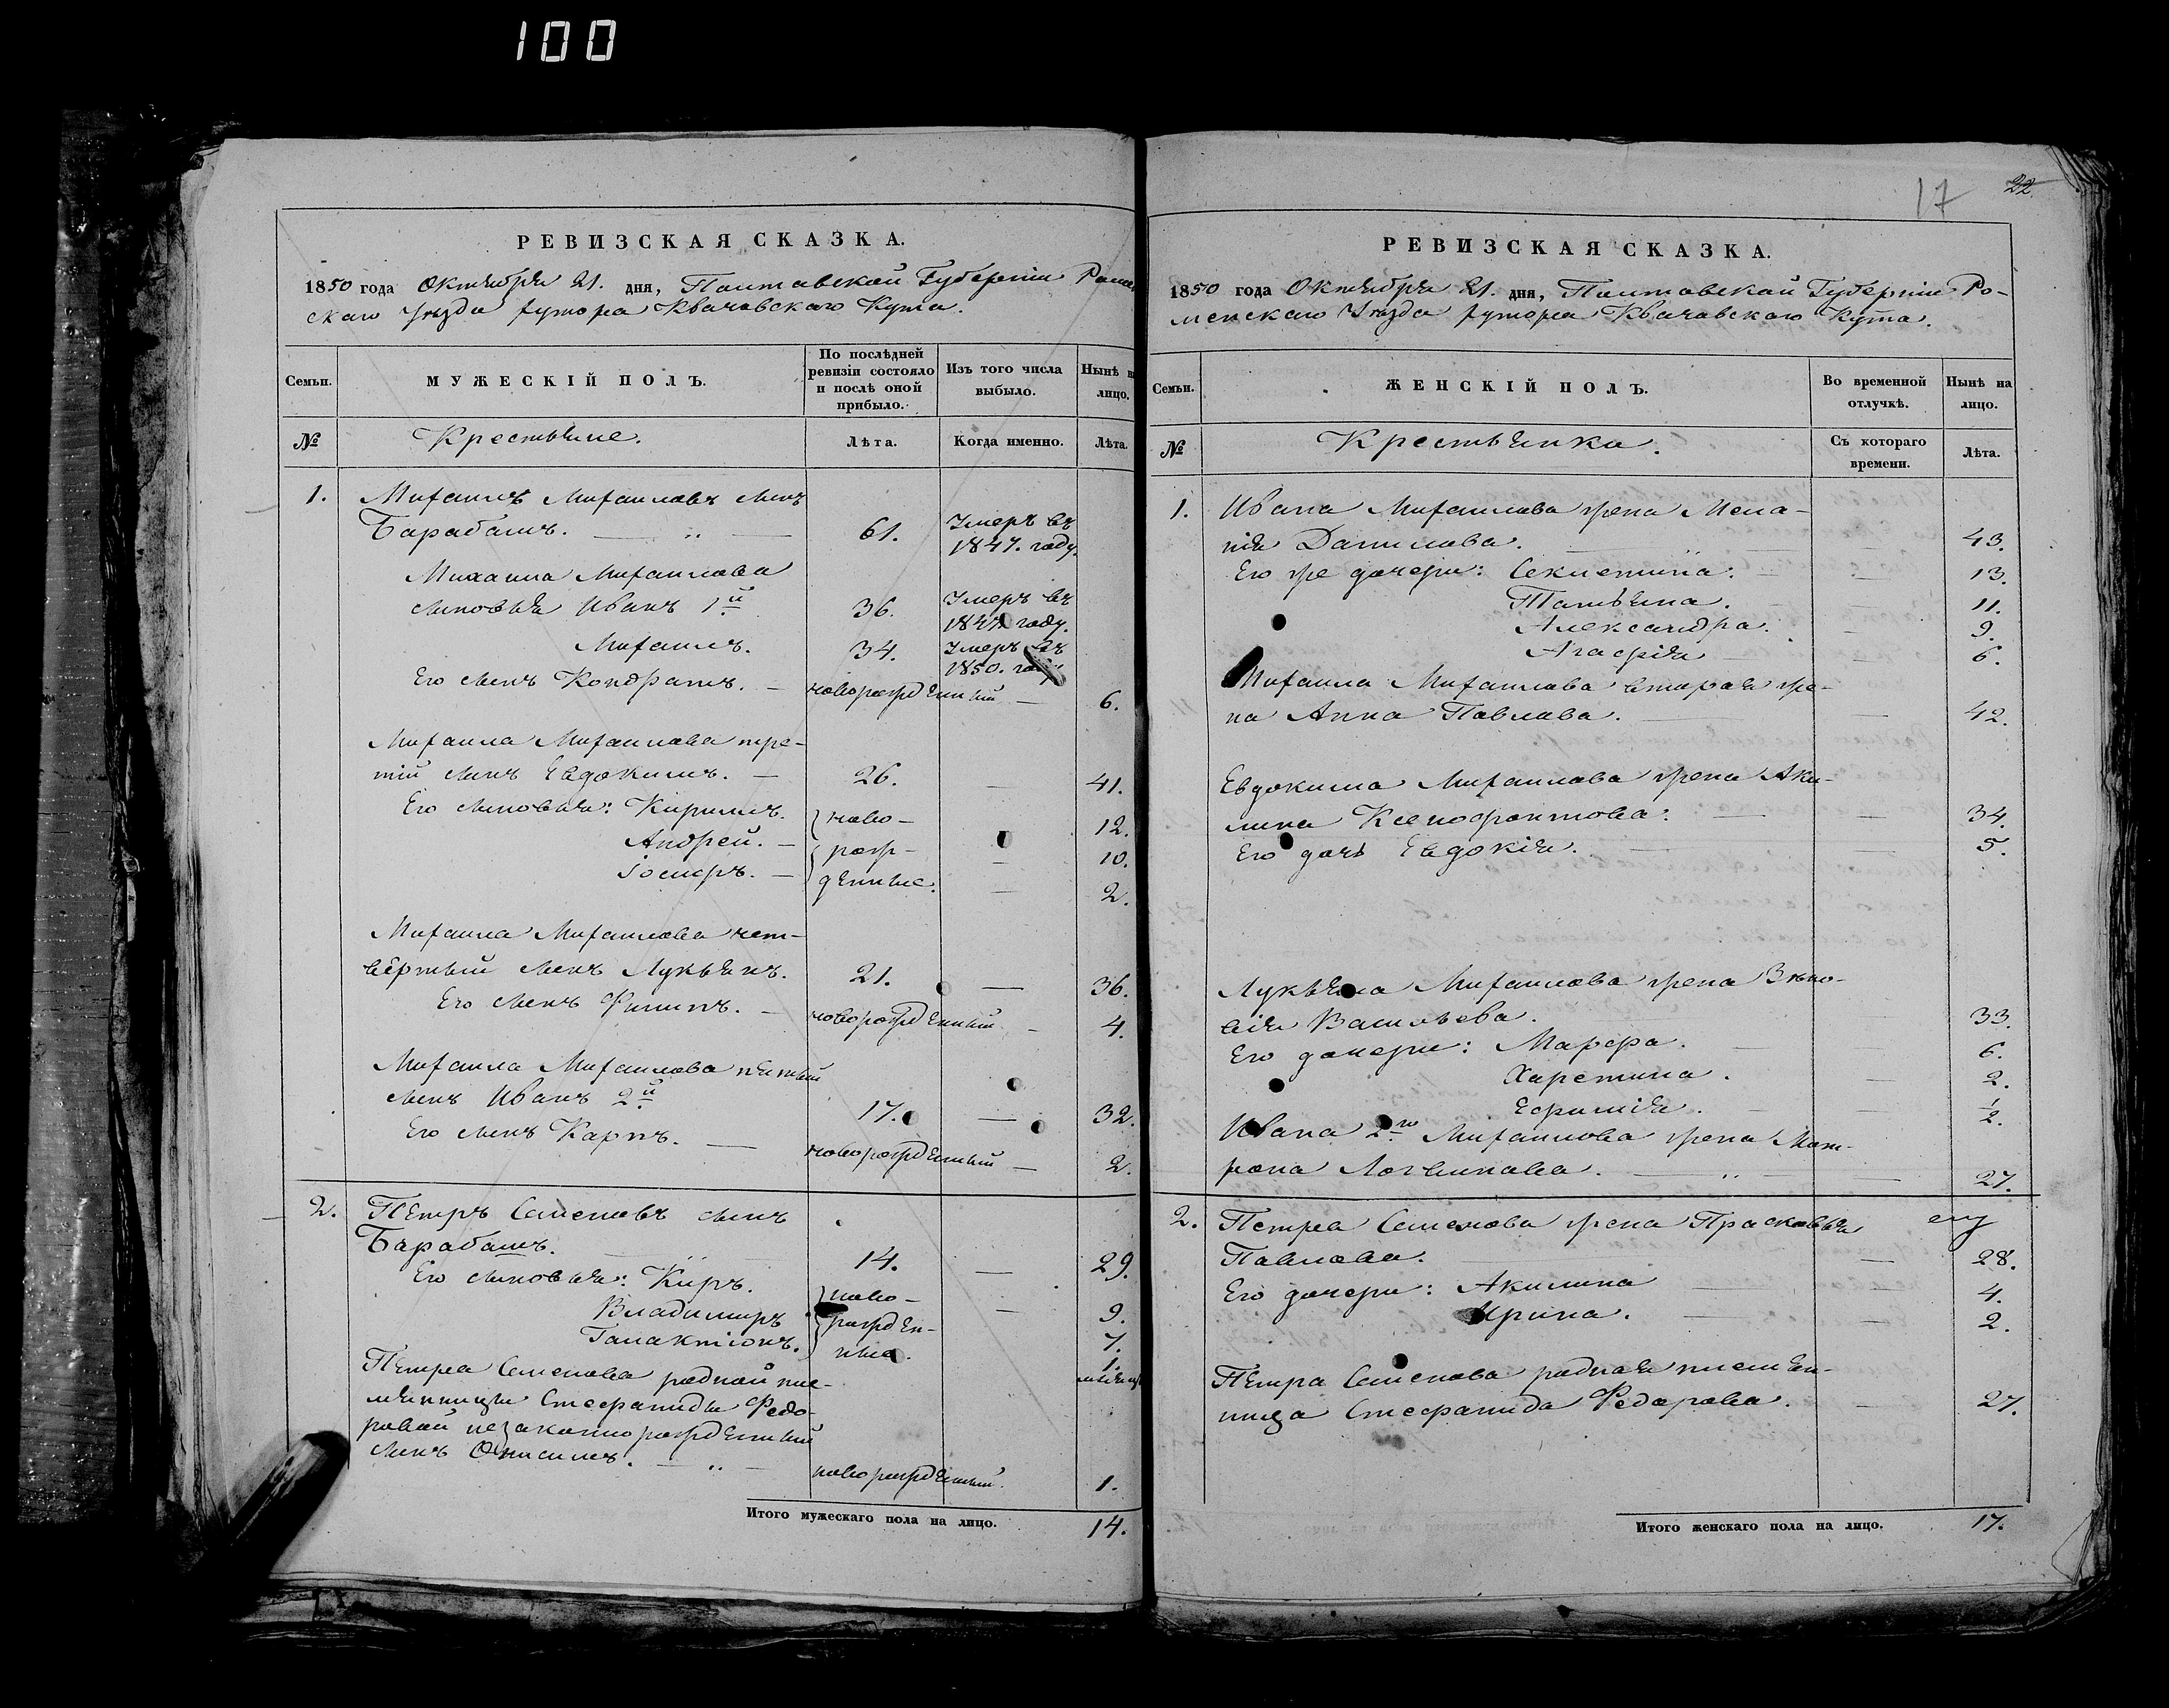 100
РЕВИЗСКАЯ СКАЗКА.
1850 года Октября 21. дня, Полтавской Губерніи Ромен
скаго Уѣзда хутора Квачовскаго Кута.
Семьи.
МУЖЕСКІЙ ПОЛЪ.
По послѣдней ревизіи состояло и послѣ оной прибыло.
Изъ того числа выбыло.
Нынѣ на лицо.
№
Крестьяне.
Лѣта.
Когда именно.
Лѣта.
1. Михаилъ Михаиловъ сынъ
Барабашъ. — „ — 61. Умеръ въ 1847. году.
Михаила Михаилова
сыновья Иванъ 1й 36. Умеръ въ 1847. году.
Михаилъ. 34. Умеръ въ 1850. году
Его сынъ Кондратъ. — новорожденный — 6.
Михаила Михаилова тре-
тій сынъ Евдокимъ. — 26. — 41.
Его сыновья: Кирилъ. ново- 12.
Андрей. — рож- — 10.
Іосифъ. — денные. — 2.
Михаила Михаилова чет-
вёртый сынъ Лукьянъ. 21. — 36.
Его сынъ Филипъ. — новорожденный — 4.
Михаила Михаилова пятый
сынъ Иванъ 2й 17. — 32.
Его сынъ Карпъ. — новорожденный — 2.
2. Пётръ Семеновъ сынъ
Барабашъ. 14. — 29.
Его сыновья: Киръ. ново- — 9.
Владимиръ рожден- 7.
Галактіонъ. ные. 1. мѣсяца
Пётра Семенова родной пле-
мянницы Стефаниды Федо-
ровой незаконнорожденный
сынъ Онисимъ. — „ — новорожденный. 1.
Итого мужескаго пола на лицо. 14.
17 22
РЕВИЗСКАЯ СКАЗКА.
1850 года Октября 21. дня, Полтавской Губерніи Ро-
менскаго Уѣзда хутора Квачавскаго Кута.
Семьи.
ЖЕНСКІЙ ПОЛЪ.
Во временной отлучкѣ.
Нынѣ на лицо.
№
Крестьянки.
Съ котораго времени.
Лѣта.
1. Ивана Михаилова жена Мела-
нія Данилова. — 43.
Его же дочери: Секлетина. — 13.
Татьяна. — 11.
Александра. — 9.
Агафія — 6.
Михаила Михаилова вторая же-
на Анна Павлова. — 42.
Евдокима Михаилова жена Аки-
лина Ксенофонтова: — 34.
Его дочь Евдокія. — 5.
Лукьяна Михаилова жена Зѣно-
вія Васильева. 33.
Его дочери: Марфа. — 6.
Харетина. — 2.
Ефимія. — 1/2.
Ивана 2го Михаилова жена Мат-
рона Логвинова. — „ — 27.
2. Петра Семенова жена Прасковья
Павлова. — 28.
Его дочери: Акилина — 4.
Ирина. — 2.
Пётра Семенова родная племян-
ница Стефанида Федорова. — 27.
Итого женскаго пола на лицо. 17.